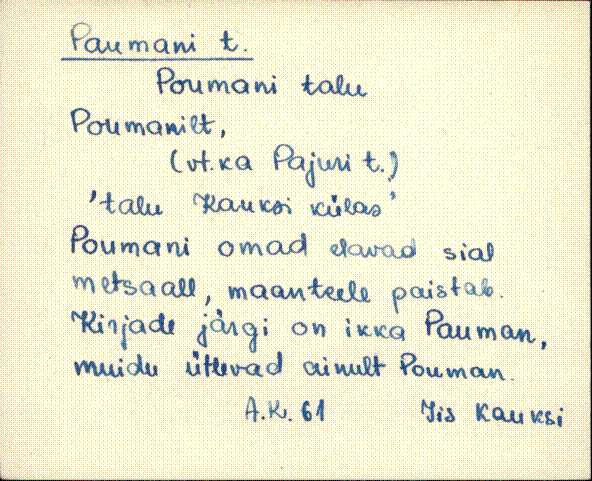 Paumani t.
Poumani talu
Poumanilt,
(vt. ka Pajuri t.)
'talu Kauksi külas'
Poumani omad elavad sial
metsaall, maanteele paistab.
Kirjade järgi on ikka Pauman,
muidu ütlevad ainult Pouman.
A.K. 61 Iis Kauksi